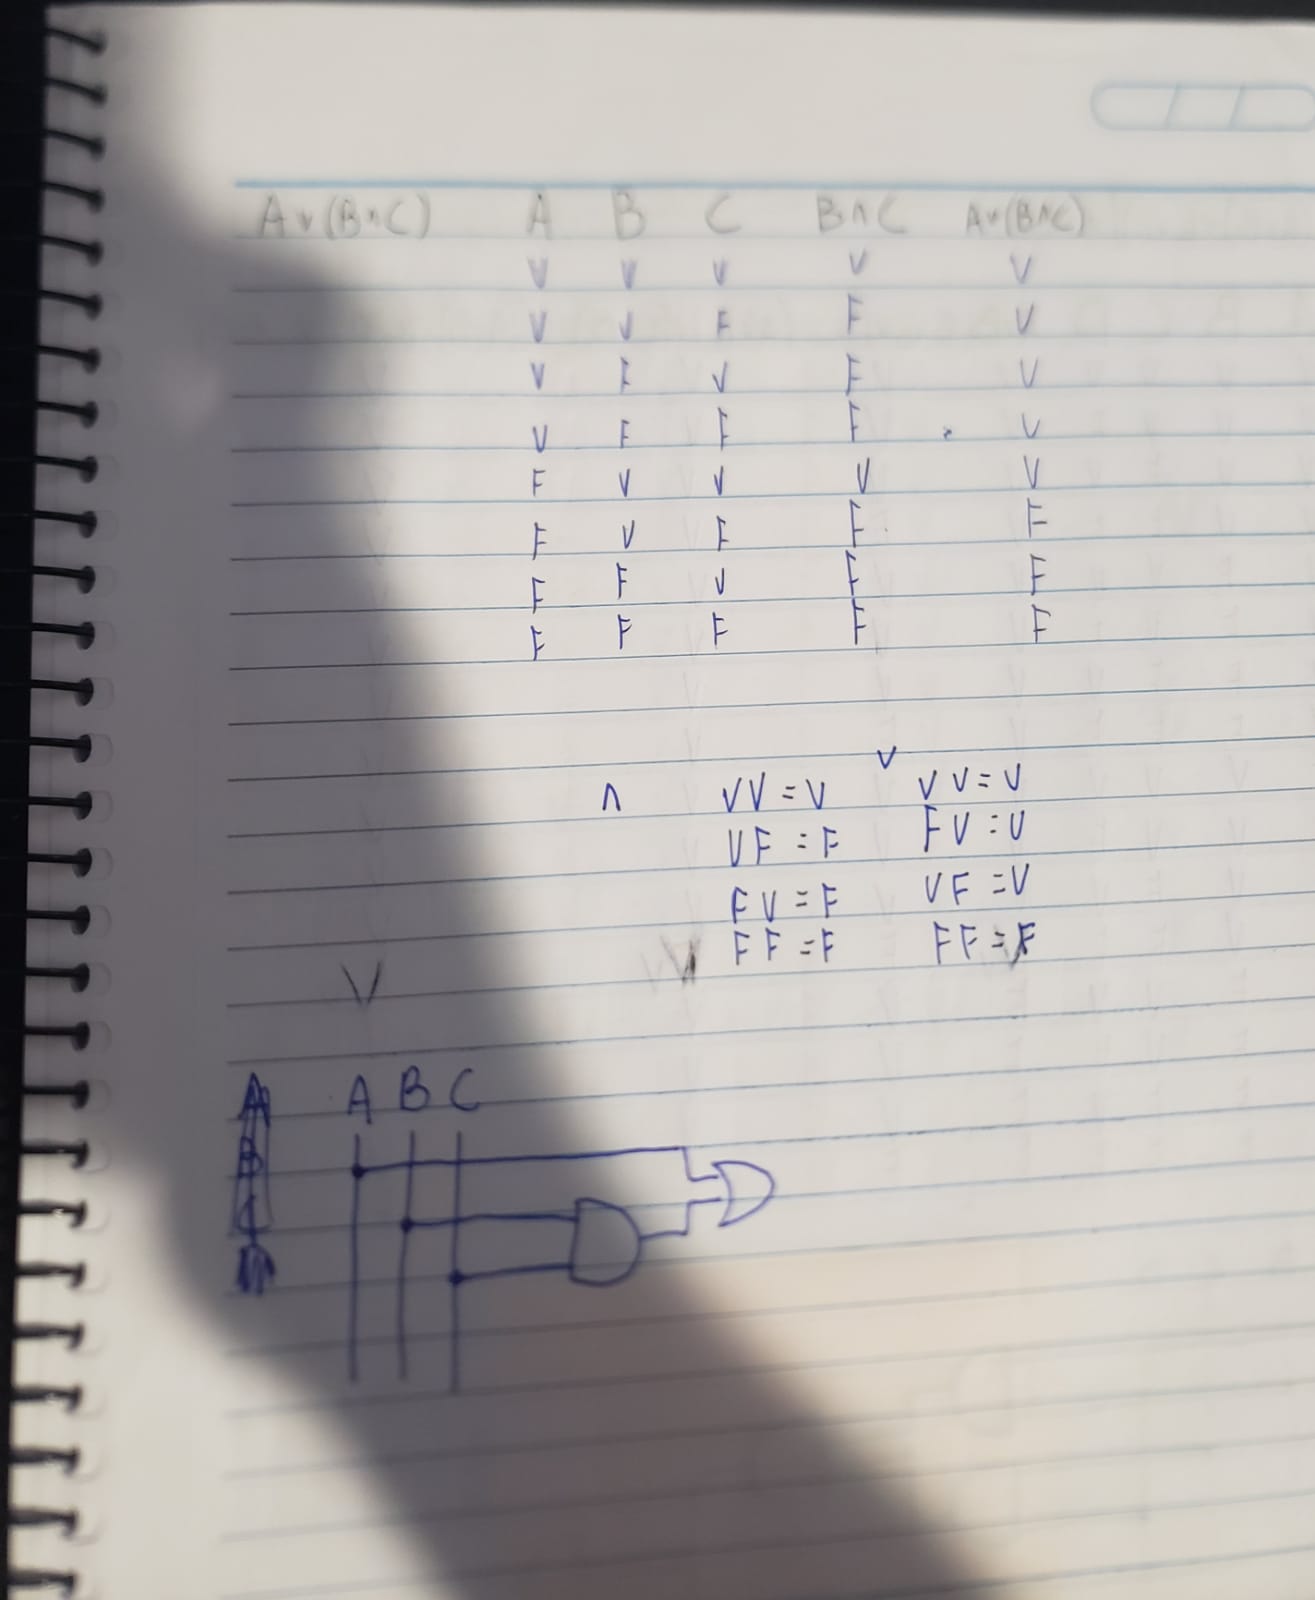 A∨(B∧C) A B C B∧C A∨(B∧C)
V V V V V
V V F F V
V F V F V
V F F F V
F V V V V
F V F F F
F F V F F
F F F F F
∨
∧ VV = V VV = V
VF = F FV = V
FV = F VF = V
FF = F FF = F
V
A B C